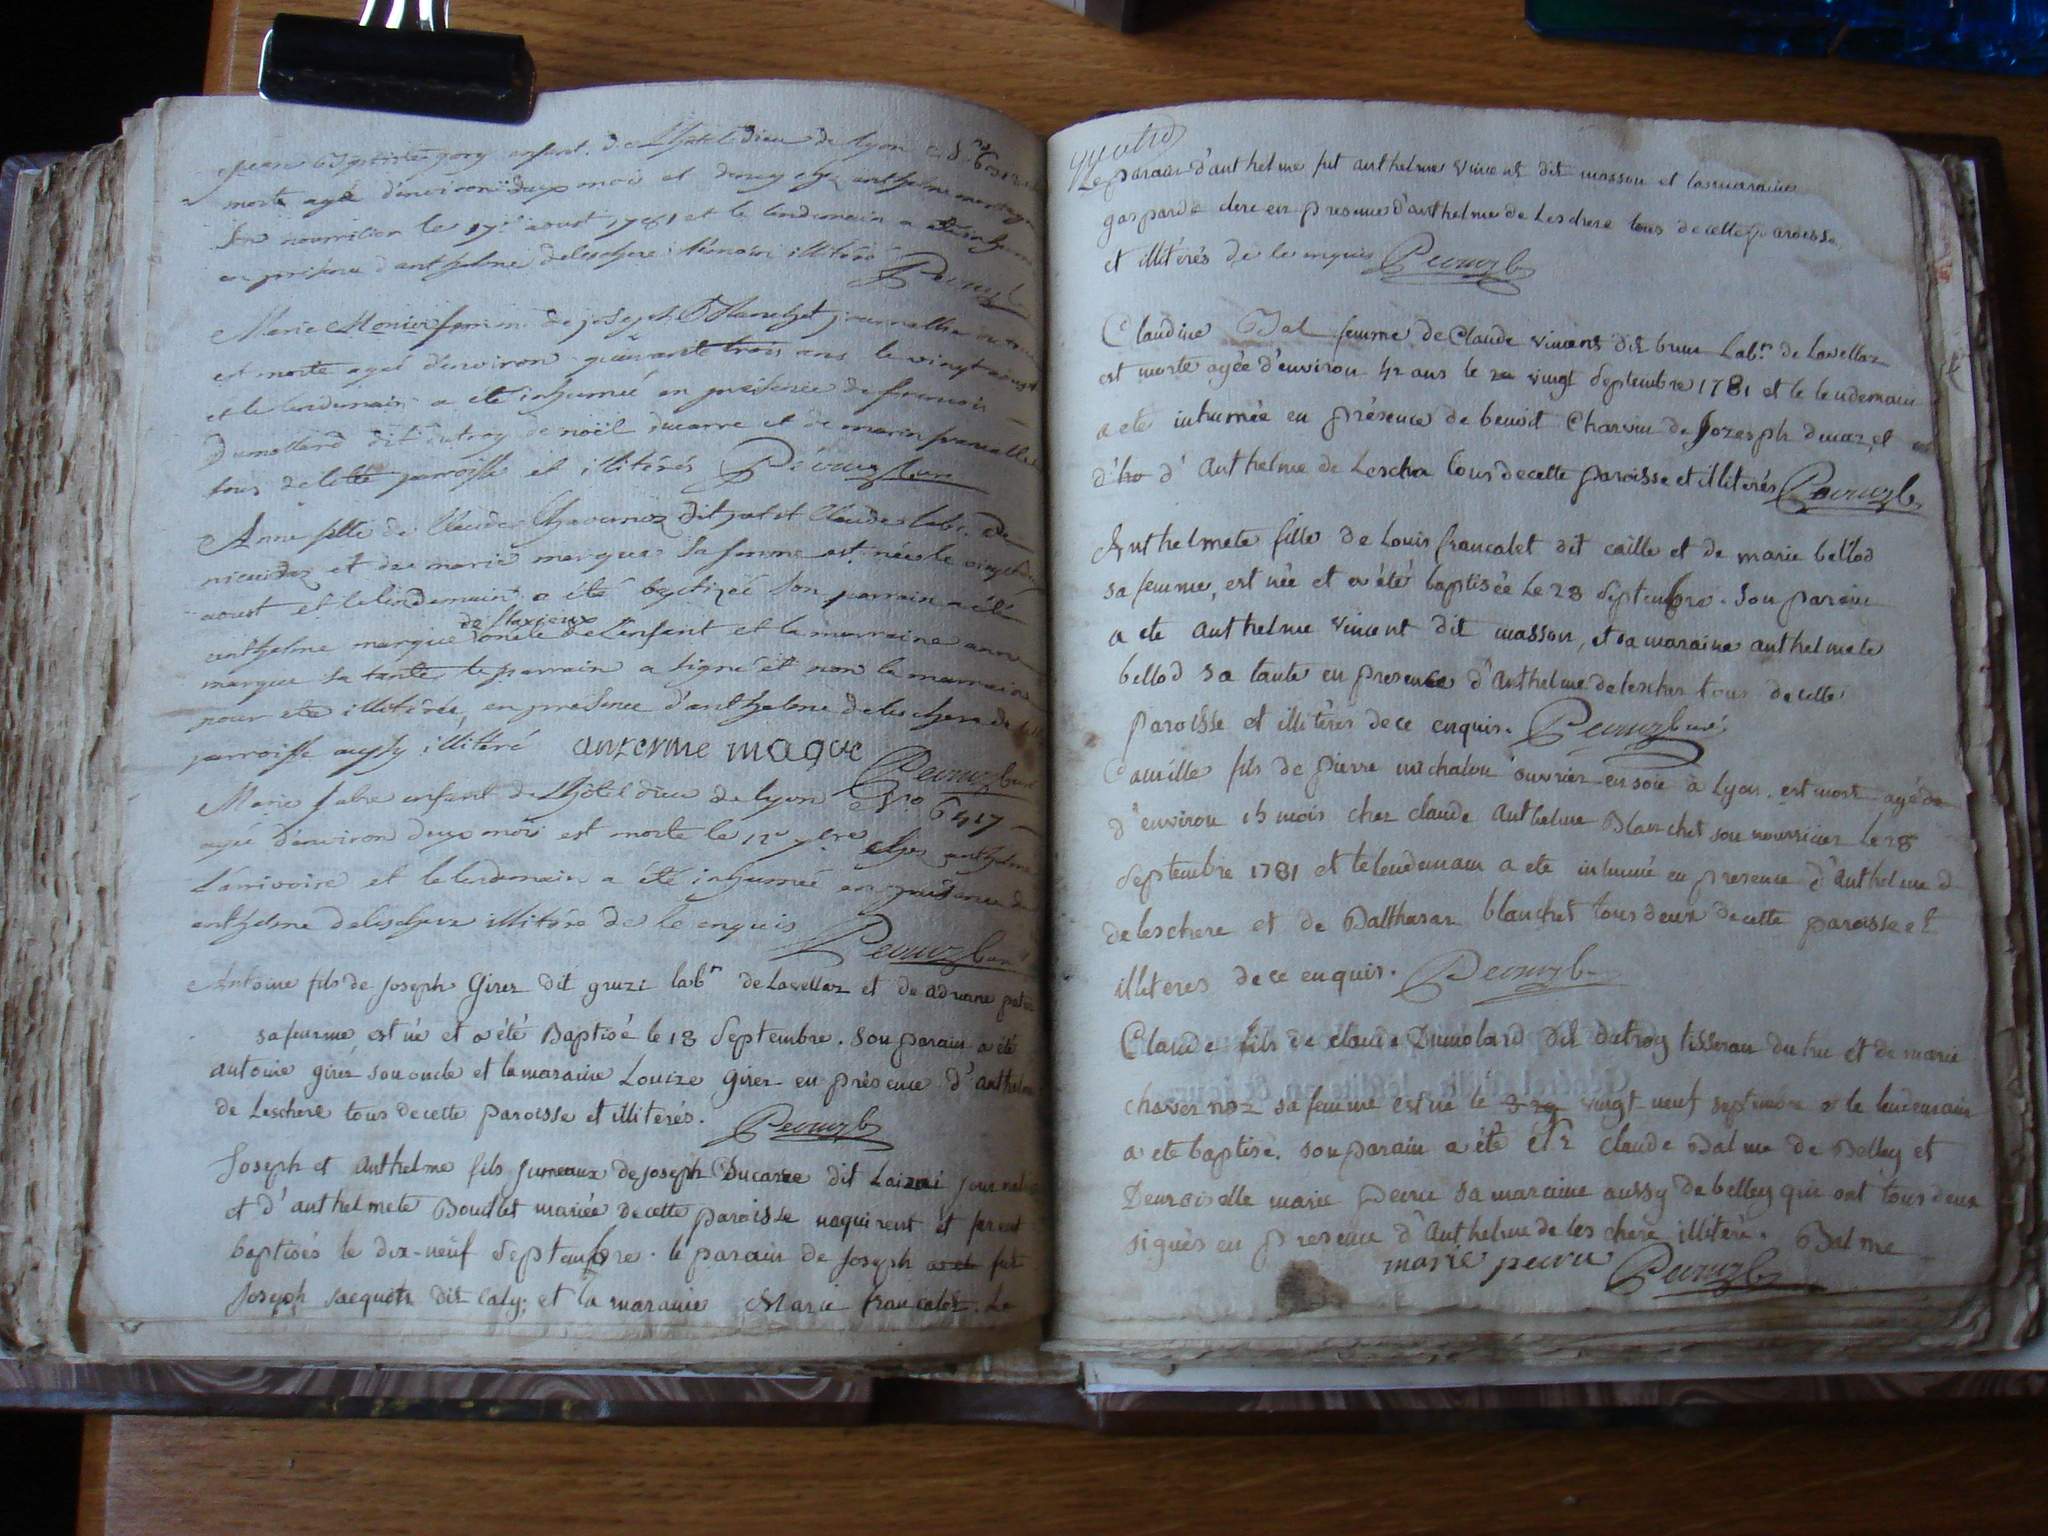 Jean Baptiste gory enfant de l'hotel dieu de lyon
morte agé d'environ deux mois et demy chez anthelme
son nourricier le 17e aoust 1781 et le lendemain a
en présence d'anthelme delechere témoin illitéré
Marie Monier femme de joseph Blanchet journallier
est morte ageé d'environ quarante trois ans le vingt aoust
et le lendemain a été inhumée en présence de francois
Dumollard dit dutroy de noël ducarre et de marin francallet
tous de cette parroisse et illitérés
Anne fille de Claude Chavernoz dit petit Claude labr. de
et de marie marque sa femme est née le vingt
aoust et le lendemain a été baptizée son parrain a été
anthelme marque de flaxieux oncle de l'enfant et la marraine anne
marque sa tante le parrain a signé et non la marraine
pour etre illitérée en présence d'anthelme delechere de
parroisse aussy illitéré anzerme maque
Marie fabre enfant de l'hôtel dieu de lyon No 6417
agée d'environ deux mois est morte le 12e 7bre chez anthelme
Larrivoire et le lendemain a été inhumée en présence de
anthelme deleschere illitéré de ce enquis
Antoine fils de joseph Girer dit gruzi labr de Lavellaz et de adriane
sa femme est né et a été Baptisé le 18 Septembre. son parain a été
antoine girer son oncle et la maraine Louize Girer en présence d'anthelme
de Leschere tous de cette paroisse et illitérés.
Joseph et anthelme fils jumeaux de joseph Ducarre dit
et d'anthelmete Bouillet mariée de cette paroisse naquirent et furent
baptisés le dix-neuf Septembre. le parain de Joseph fut
Joseph Jacquet dit caly; et la maraine Marie francalet. Le
Le parain d'anthelme fut anthelme vincent dit masson et la maraine
gasparde clere en presence d'anthelme de Leschere tous de cette paroisse
et illitérés de ce enquis
Claudine Bal femme de Claude vincent dit brun Labr de Lavellaz
est morte agée d'environ 42 ans le vingt Septembre 1781 et le lendemain
a eté inhumée en présence de benoit Charvin de Jozesph ducar et
d'Anthelme de Lescher tous de cette paroisse et illiterés
Anthelmete fille de Louis francalet dit caille et de marie bellod
sa femme, est née et a été baptisée Le 28 Septembre. Son parain
a eté Anthelme vincent dit masson, et sa maraine anthelmete
bellod sa tante en presence d'Anthelme delescher tous de cette
paroisse et illitérés de ce enquis.
Camille fils de pierre michalon ouvrier en soie à Lyon. est mort agé de
d'environ 15 mois chez claude Anthelme Blanchet son nourricier Le 28
Septembre 1781 et le lendemain a eté inhumé en presence d'Anthelme d
delescherе et de Balthazar blanchet tous deux de cette paroisse et
illiteres de ce enquis.
Claude fils de claude Dumolard dit dutroy tisseran et de marie
chavernoz sa femme est né le vingt-neuf septembre et le lendemain
a eté baptisé. son parain a été Claude Balme de Belley et
Demoiselle marie Peeru sa maraine aussy de belley qui ont tous deux
signés en presence d'Anthelme de leschere illitéré. Balme
marie peeru